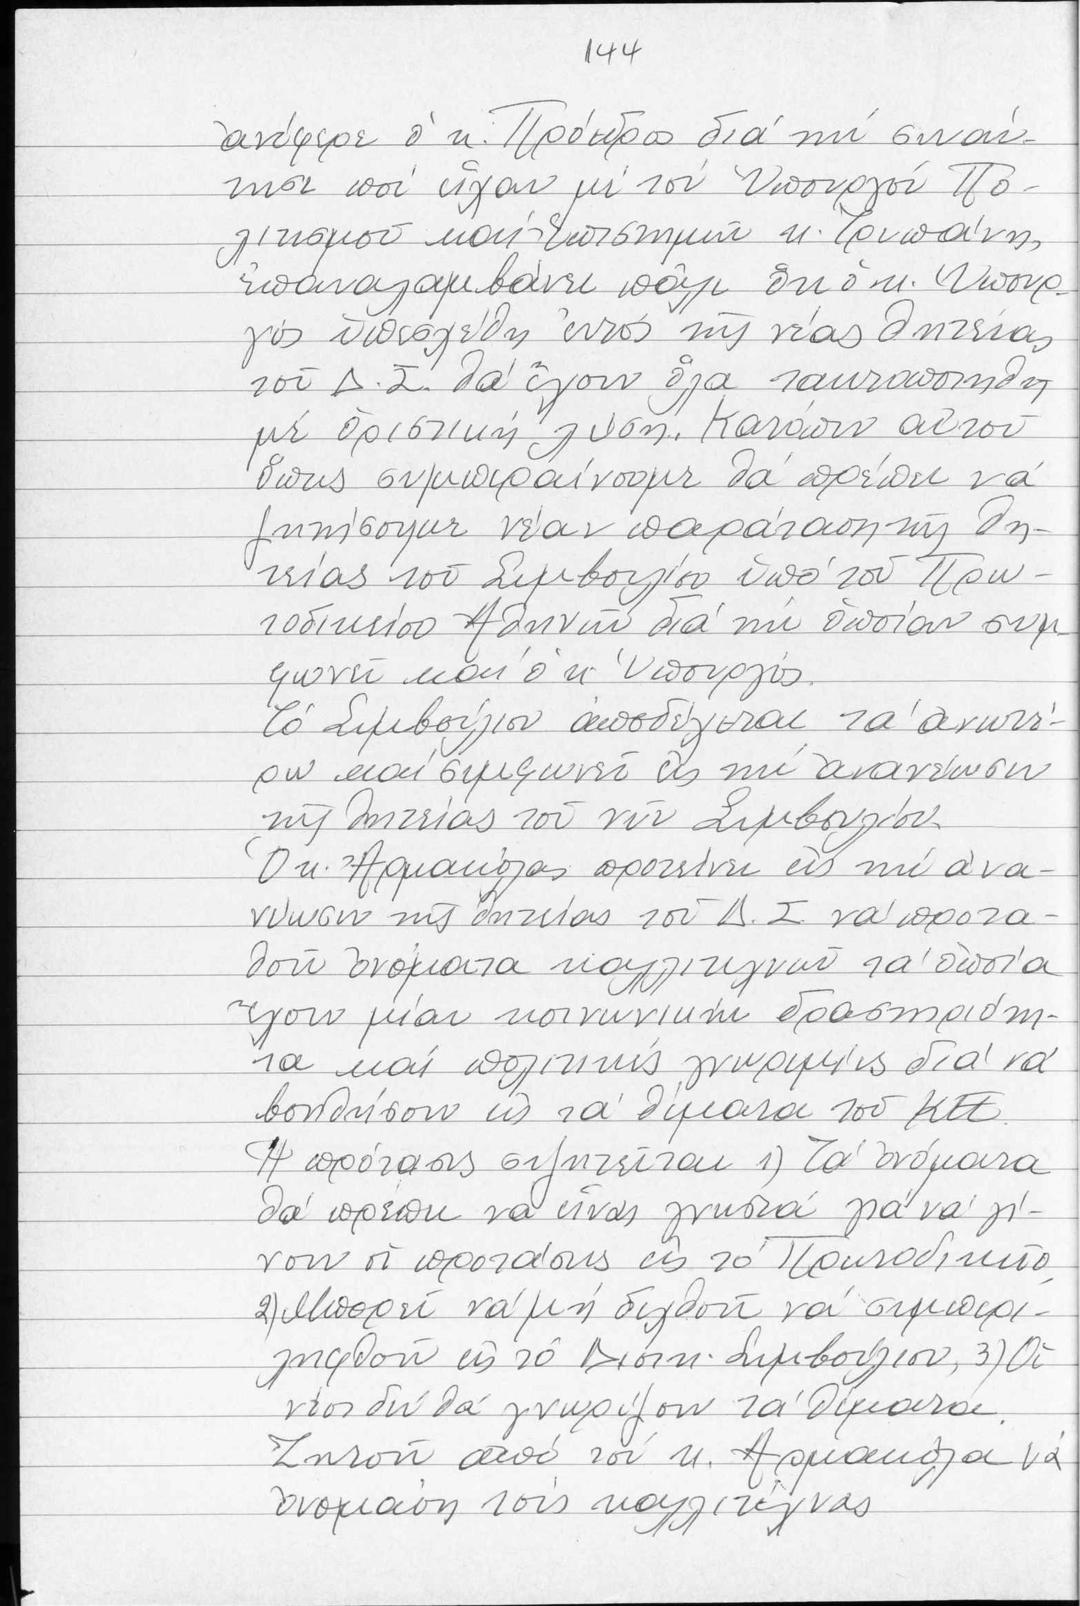 144
ἀνέφερε ὁ κ. Πρόεδρος διά τήν συνάν-
τησι πού εἶχαν μέ τόν Ὑπουργόν Πο-
λιτισμοῦ καί Ἐπιστημῶν κ. Τρυπάνη,
ἐπαναλαμβάνει πάλι ὅτι ὁ κ. Ὑπουρ-
γός ὑπεσχέθη ἐντός τῆς νέας θητείας
τοῦ Δ.Σ. θά ἔχουν ὅλα τακτοποιηθῆ
μέ ὁριστική λύση. Κατόπιν αὐτοῦ
ὅπως συμπεραίνουμε θά πρέπει νά
ζητήσουμε νέαν παράταση τῆς θη-
τείας τοῦ Συμβουλίου ὑπό τοῦ Πρω-
τοδικείου Ἀθηνῶν διά τήν ὁποίαν συμ
φωνεῖ καί ὁ κ. Ὑπουργός.
Τό Συμβούλιον ἀποδέχεται τά ἀνωτέ-
ρω καί συμφωνεῖ εἰς τήν ἀνανέωσιν
τῆς θητείας τοῦ νῦν Συμβουλίου.
Ὁ κ. Ἀρμακόλας προτείνει εἰς τήν ἀνα-
νέωσιν τῆς θητείας τοῦ Δ.Σ νά προτα-
θοῦν ὀνόματα καλλιτεχνῶν τά ὁποῖα
ἔχουν μίαν κοινωνικήν δραστηριότη-
τα καί πολιτικές γνωριμίες διά νά
βοηθήσουν εἰς τά θέματα τοῦ ΚΕΕ.
Ἡ πρότασις συζητεῖται 1) Τά ὀνόματα
θά πρέπει νά εἶναι γνωστά γιά νά γί-
νουν οἱ προτάσεις εἰς τό Πρωτοδικεῖο,
2) Μπορεῖ νά μή δεχθοῦν νά συμπερι-
ληφθοῦν εἰς τό Διοικ. Συμβούλιον, 3) Οἱ
νέοι δέν θά γνωρίζουν τά θέματα.
Ζητοῦν ἀπό τόν κ. Ἀρμακόλα νά
ὀνομάση τούς καλλιτέχνας